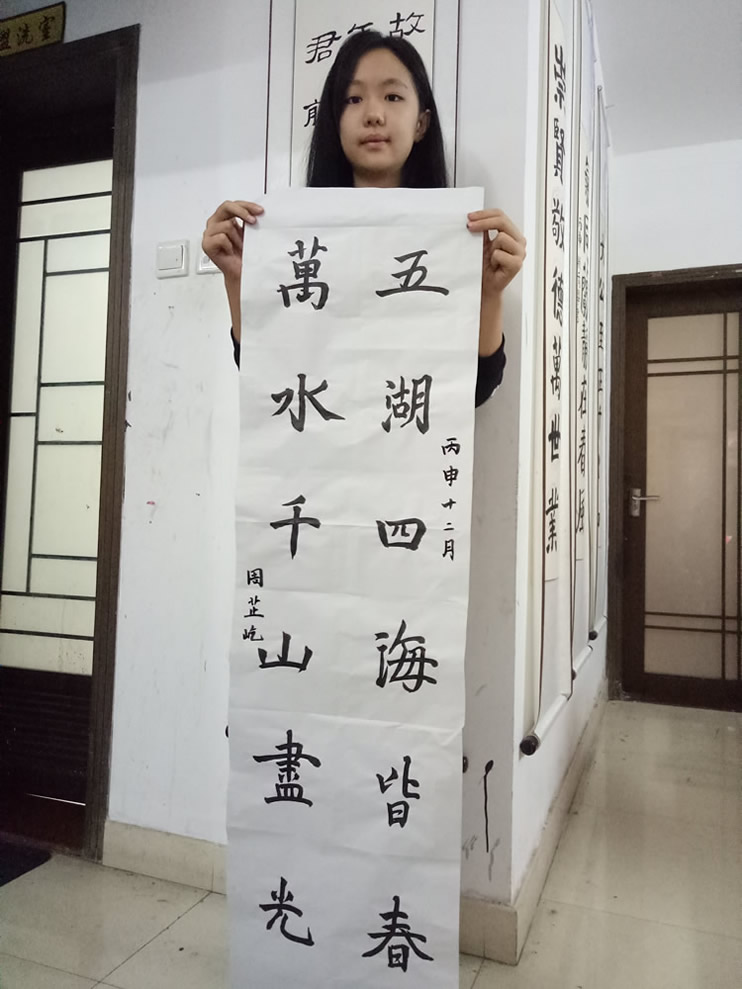 盥洗室
故
君
五湖四海皆春
丙申十二月
萬水千山盡光
周芷屹
崇賢敬德萬世業